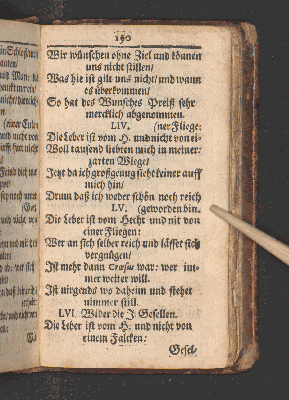 190
Wir wünschen ohne Ziel und können
uns nicht stillen/
Was hie ist gilt uns nicht/ und wann
es überkommen/
So hat des Wunsches Preiß sehr
mercklich abgenommen.
LIV. (ner Fliege:
Die Leber ist vom H. und nicht von ei-
Woll tausend liebten mich in meiner
zarten Wiege/
Jetzt da ich groß genug sieht keiner auff
mich hin/
Drum daß ich weder schön noch reich
LV. (geworden bin.
Die Leber ist vom Hecht und nit von
einer Fliegen:
Wer an sich selber reich und lässet sich
vergnügen/
Ist mehr dann Crœsus war: wer im-
mer weiter will.
Ist nirgends wo daheim und stehet
nimmer still.
LVI. Wider die J. Gesellen.
Die Leber ist vom H. und nicht von
einem Falcken:
Gesel-